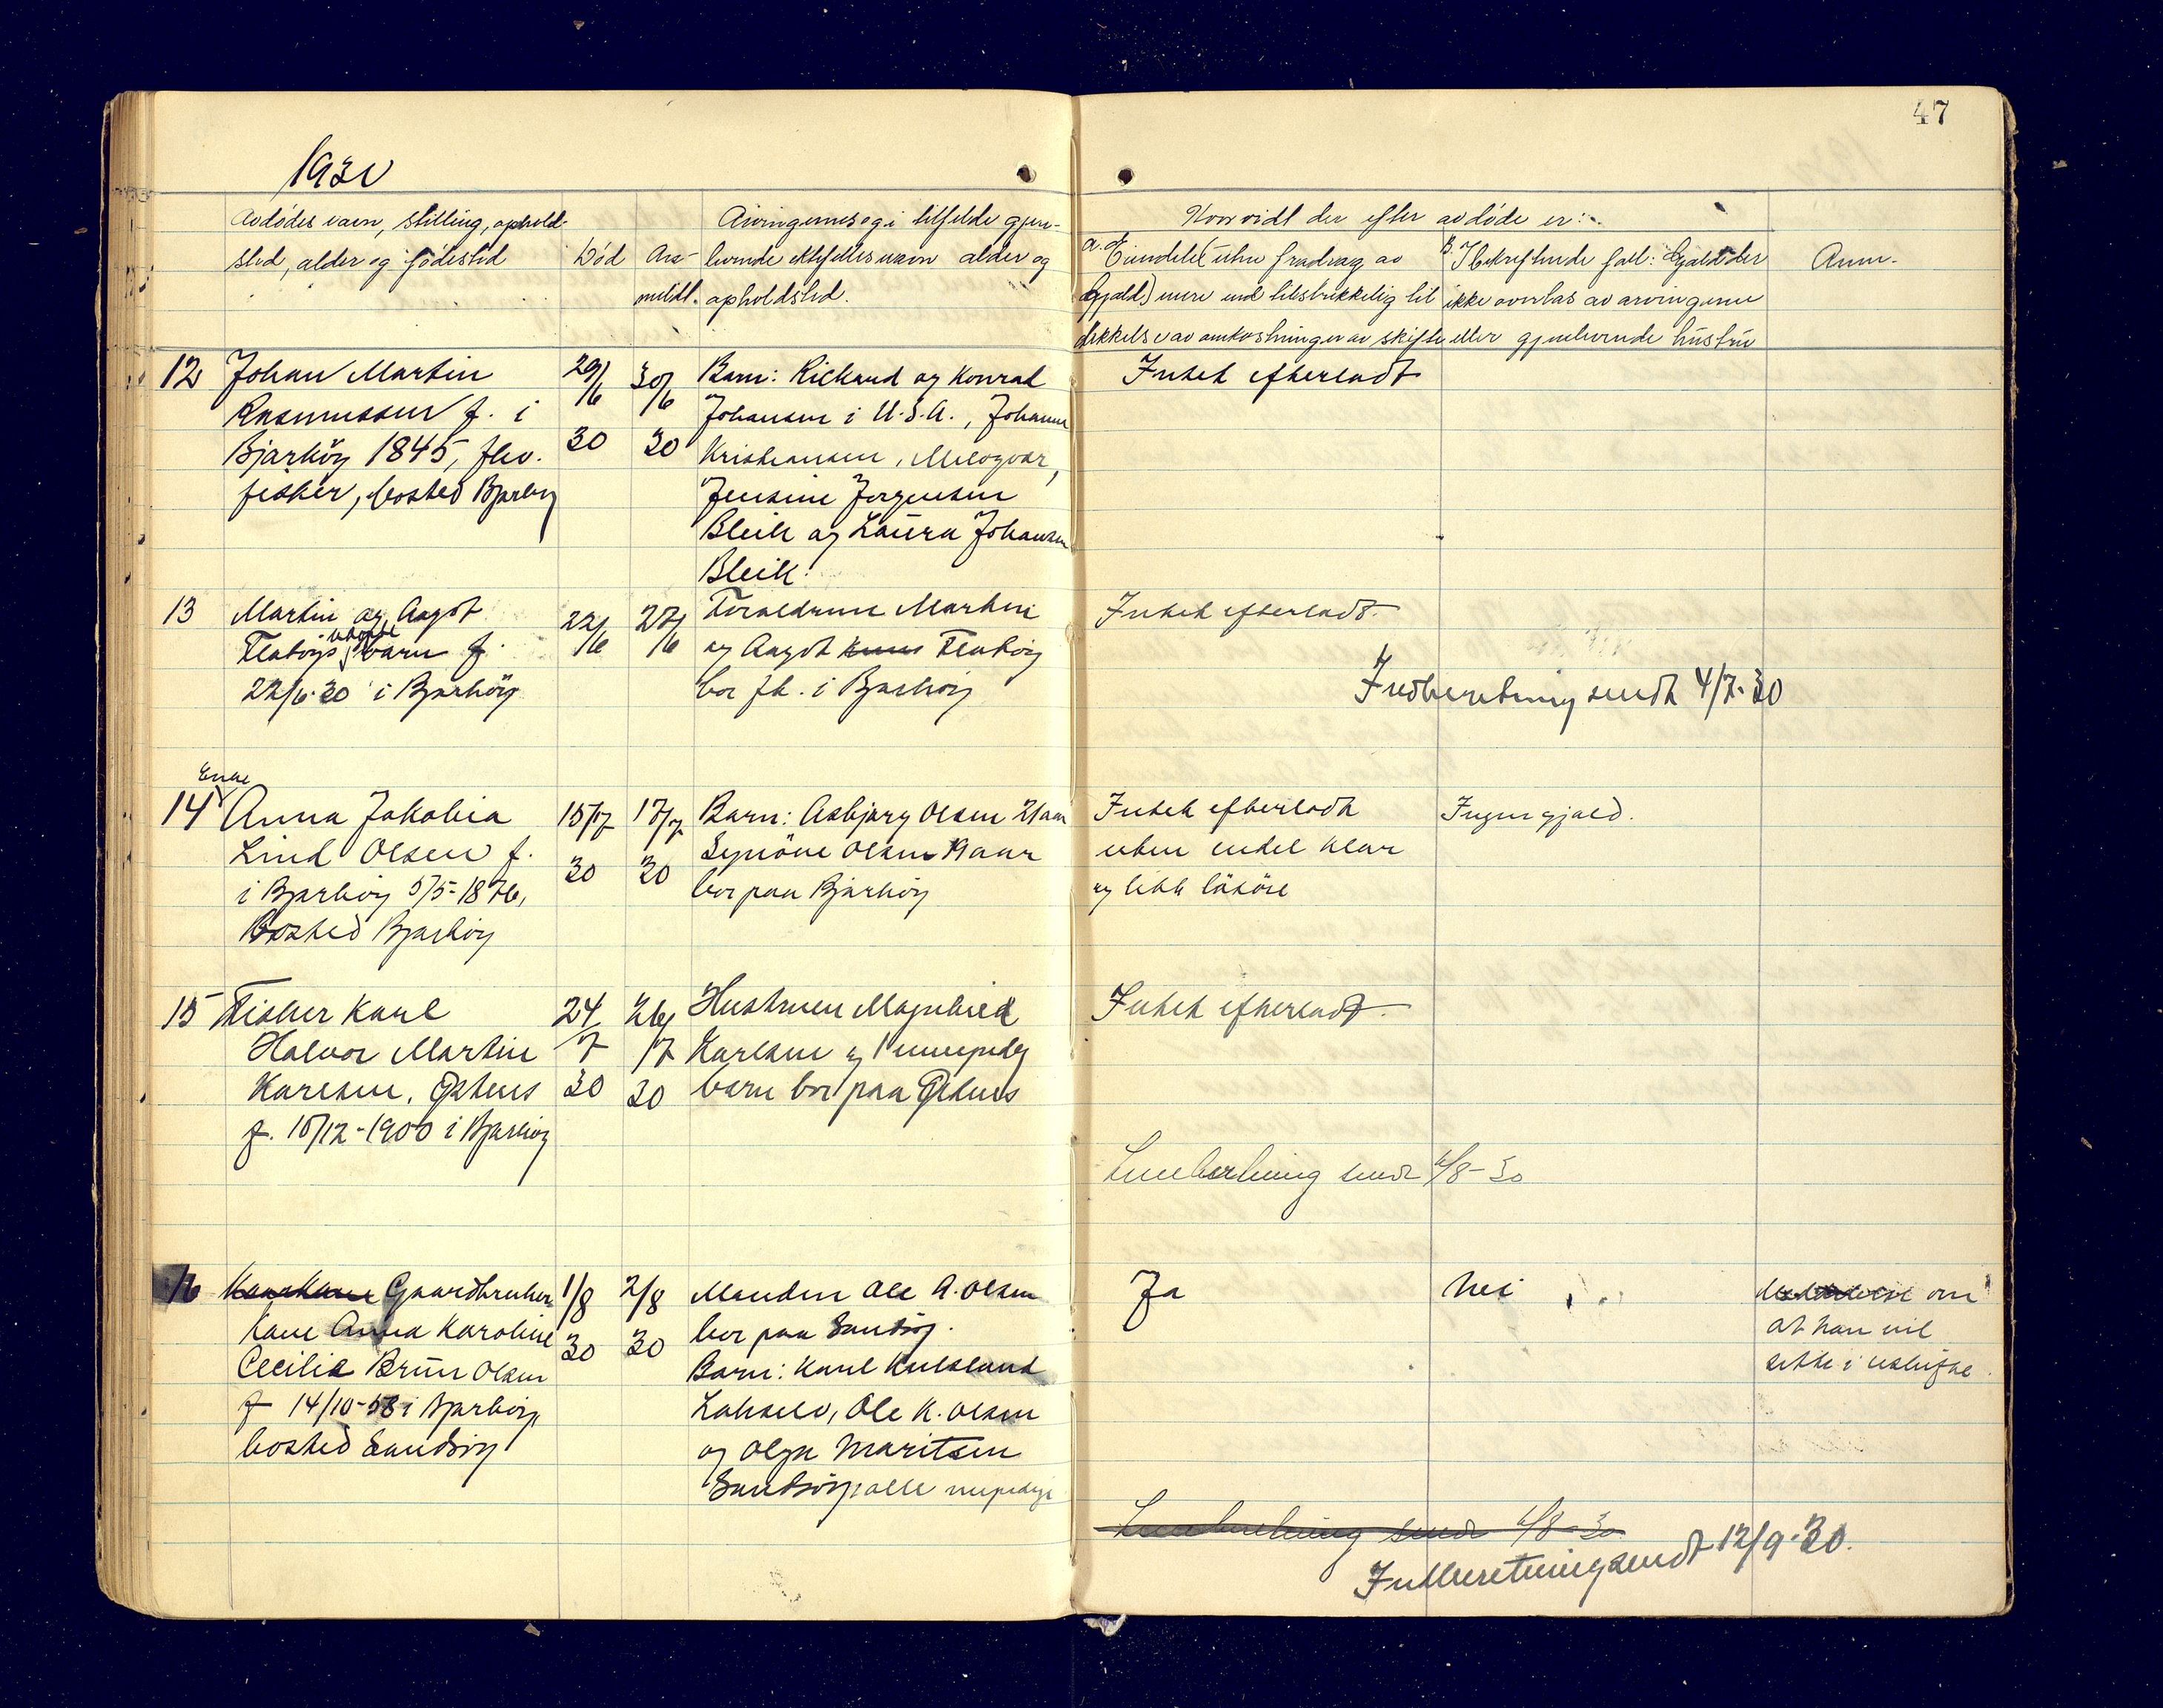 47
1930
Avdødes navn, stilling, ophold-
sted, alder og fødested
Død
An-
meldt.
Arvingernes og i tilfelde gjen-
levende ektefelles navn alder og
opholdsted.
Hvorvidt der efter avdøde er:
a. Eiendele (uten fradrag av
Gjæld) mere end tilstrekkelig til
dekkelse av omkostninger av skifte
B. I bekreftende fall: Gjæld der
ikke overtas av arvingerne
eller gjenlevende hustru
Anm.
12 Johan Martin
Rasmussen f. i
Bjarköy 1845, fhv.
fisker, bosted Bjarköy
29/6
30
30/6
30
Barn: Rickard og Konrad
Johansen i U.S.A., Johanne
Kristiansen, Melogvær,
Jensine Jorgensen
Bleik og Laura Johansen
Bleik.
Intet efterladt
13 Martin og Aagot
Flatöys udöpte barn f.
22/6-30 i Bjarköy
22/6
27/6
Foreldrene Martin
og Aagot Flatöy
bor fh. i Bjarköy
Intet efterladt.
Indberetning sendt 4/7-30
14 Enke Anna Jakobia
Lind Olsen f.
i Bjarköy 5/5-1876,
Bosted Bjarköy
15/7
30
17/7
30
Barn: Asbjørg Olsen 21 aar
Synöve Olsen 19 aar
bor paa Bjarköy
Intet efterladt
uten endel klær
og litt lösöre
Ingen gjæld.
15 Fisker Karl
Halvor Martin
Karlsen, Grötnes
f. 15/12-1900 i Bjarköy
24/7
30
26/7
30
Hustruen Magnhild
Karlsen og 1 umyndig
barn bor paa Grötnes
Intet efterladt.
Innberetning sendt 6/8-30
16 Gaardbruker
kone Anna Karoline
Cecilie Brun Olsen
f 14/10-58 i Bjarköy,
bosted Sandsöy
1/8
30
2/8
30
Manden Ole A. Olsen
bor paa Sandsöy.
Barn: Karl Kulseland
Lakselv, Ole K. Olsen
og Olga Maritsen
Sandsöy, alle myndige
Ja
Nei
om
at han vil
sitte i uskifte.
Innberetning sendt 6/8-30
Indberetning sendt 12/9-30.